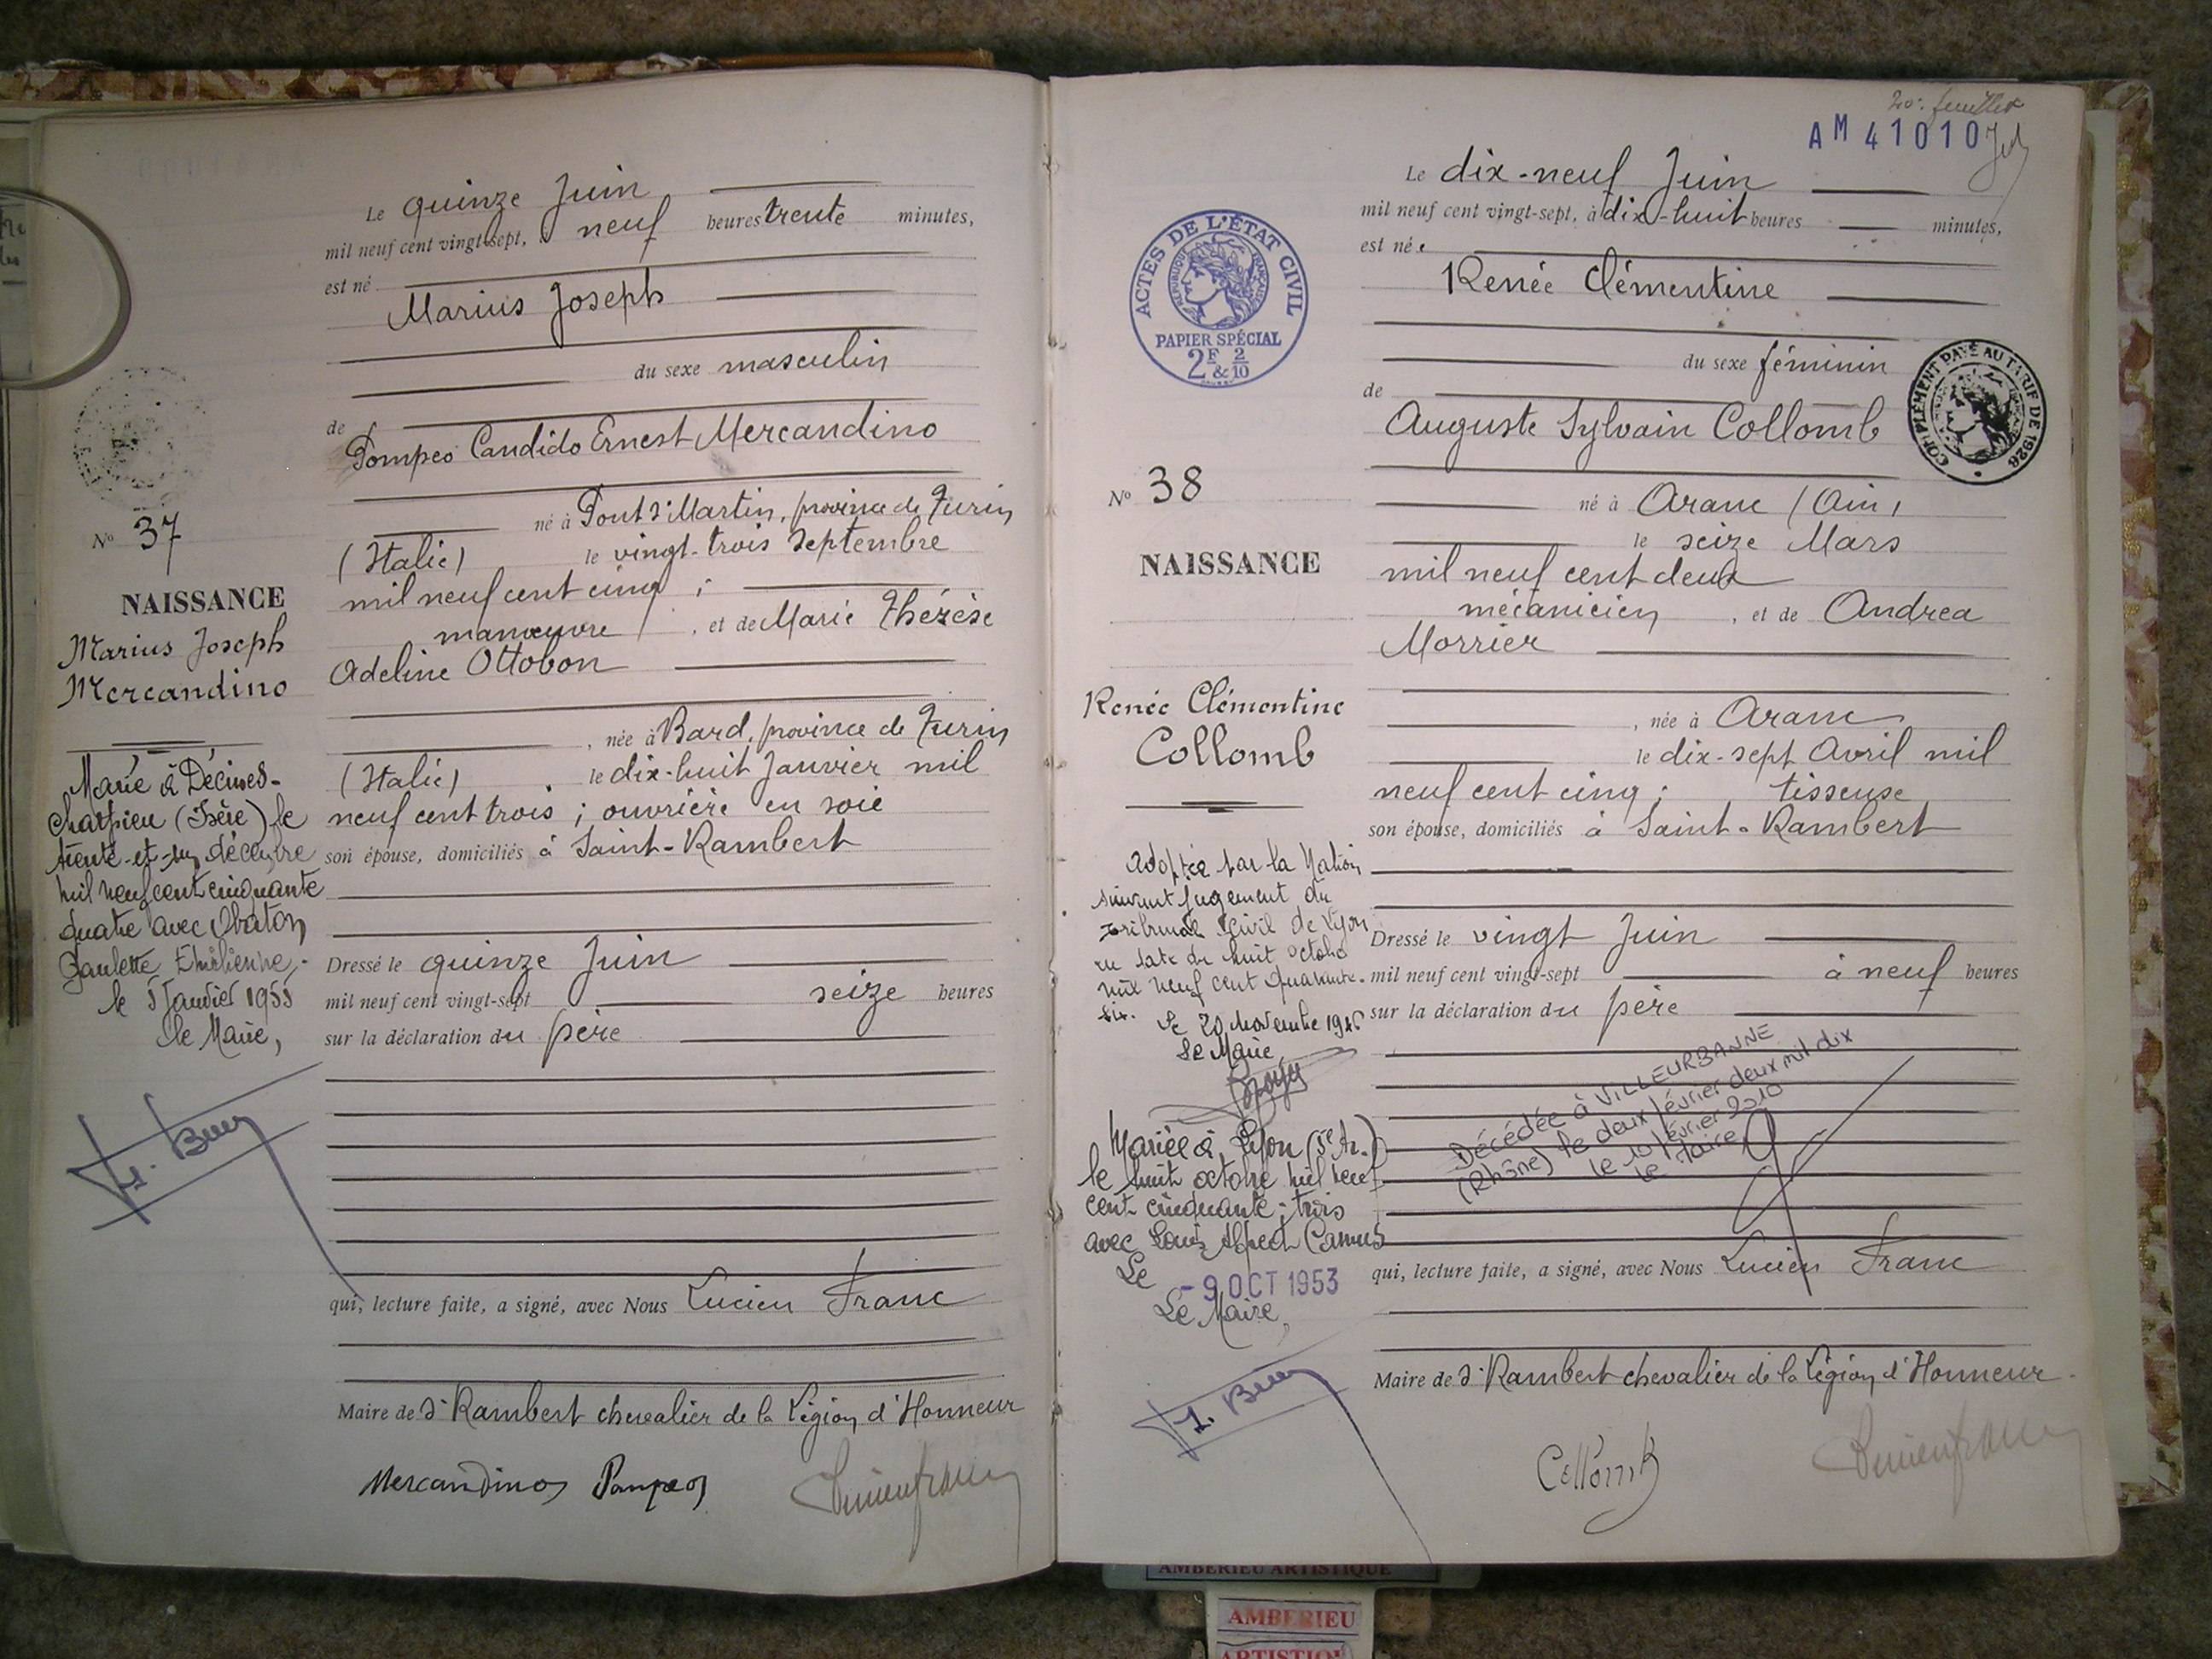 Le quinze Juin
mil neuf cent vingt-sept, à neuf heures trente minutes,
est né
Marius Joseph
du sexe masculin
de
Pompeo Candido Ernest Mercandino
né à Pont St Martin, province de Turin
(Italie) le vingt-trois Septembre
mil neuf cent cinq ;
manœuvre, et de Marie Thérèse
Adeline Ottobon
, née à Bard, province de Turin
(Italie) le dix-huit Janvier mil
neuf cent trois ; ouvrière en soie
son épouse, domiciliés à Saint-Rambert
Dressé le quinze Juin
mil neuf cent vingt-sept seize heures
sur la déclaration du père
qui, lecture faite, a signé, avec Nous Lucien Franc
Maire de St Rambert chevalier de la Légion d'Honneur
Mercandino Pompeo
Lucien Franc
No 37
NAISSANCE
Marius Joseph
Mercandino
Marié à Décines-
Charpieu (Isère) le
trente-et-un décembre
mil neuf cent cinquante
quatre avec Obaton
Paulette Emilienne,
le 5 Janvier 1955
Le Maire,
20e feuillet
AM 41010
Le dix-neuf Juin
mil neuf cent vingt-sept, à dix-huit heures minutes,
est née
Renée Clémentine
du sexe féminin
de
Auguste Sylvain Collomb
né à Aranc (Ain)
le seize Mars
mil neuf cent deux
mécanicien, et de Andrea
Morrier
, née à Aranc
le dix-sept Avril mil
neuf cent cinq ; tisseuse
son épouse, domiciliés à Saint-Rambert
Dressé le vingt Juin
mil neuf cent vingt-sept à neuf heures
sur la déclaration du père
Décédée à VILLEURBANNE
(Rhône) le deux février deux mil dix
le 10 février 2010
Le Maire
qui, lecture faite, a signé, avec Nous Lucien Franc
Maire de St Rambert chevalier de la Légion d'Honneur
Collomb
Lucien Franc
ACTES DE L'ÉTAT CIVIL
RÉPUBLIQUE FRANÇAISE
PAPIER SPÉCIAL
2F & 2/10
COMPLÉMENT PAYÉ AU TARIF DE 1926
No 38
NAISSANCE
Renée Clémentine
Collomb
Adoptée par la Nation
suivant jugement du
Tribunal Civil de Lyon
en date du huit octobre
mil neuf cent quarante-
six.
Le 20 Novembre 1946
Le Maire
Mariée à Lyon (5e Ar.)
le huit octobre mil neuf
cent cinquante-trois
avec Louis Camus
Le -9 OCT 1953
Le Maire,
AMBERIEU ARTISTIQUE
AMBERIEU
ARTISTIQUE